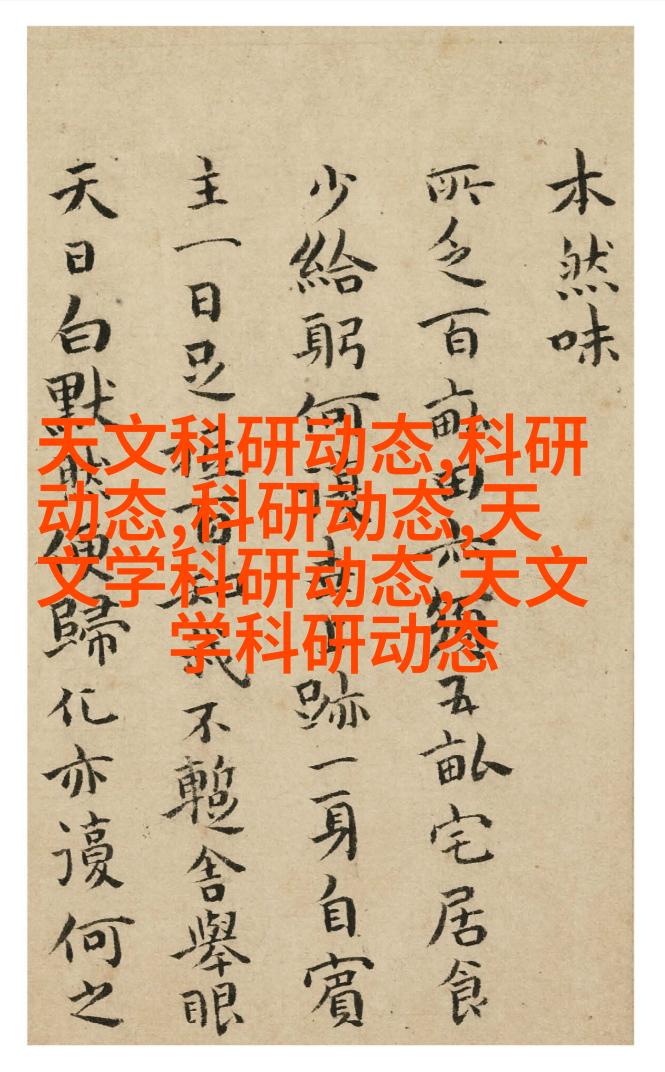 本然味
所乏百畝田五畝宅居食
少給躬何暇跡一身自賓
主一日足不暫舍舉眼
天日白默然便歸化亦謾何之
天文科研动态,科研
动态,科研动态,天
文学科研动态,天文
学科研动态